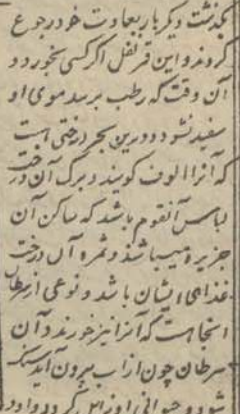 بگذشت دیگر بار بعادت خود رجوع
کردند و این قرنفل اگر کسی بخورد و
آن وقت که رطب برسد موی او
سفید نشود و درین بحر درختی است
که آنرا الوف کویند و برک آن درخت
لباس آنقوم باشد که ساکن آن
جزیره میباشند و ثمره آن درخت
غذای ایشان باشد و نوعی از سرطان
آنجا است که آنرا نیز خورند و آن
سرطان چون از آب بیرون آید سنگ
شود و حیوانی او زایل گردد و ادو